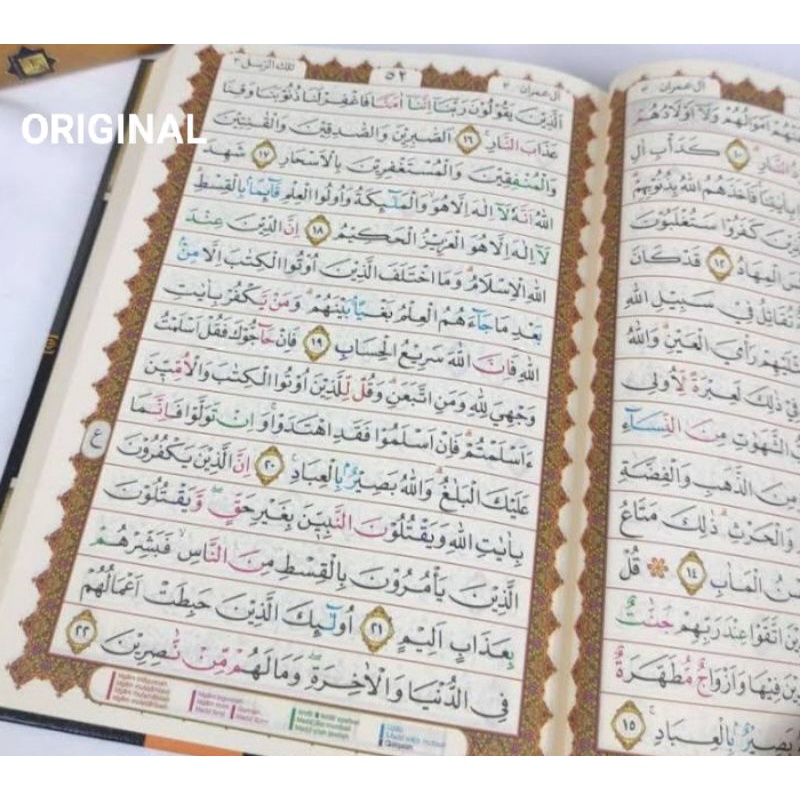 ORIGINAL
تلك الرسل ٣
٥٢
اٰل عمران ٣
اَلَّذِيْنَ يَقُوْلُوْنَ رَبَّنَآ اِنَّنَآ اٰمَنَّا فَاغْفِرْ لَنَا ذُنُوْبَنَا وَقِنَا
عَذَابَ النَّارِۚ ١٦ اَلصّٰبِرِيْنَ وَالصّٰدِقِيْنَ وَالْقٰنِتِيْنَ
وَالْمُنْفِقِيْنَ وَالْمُسْتَغْفِرِيْنَ بِالْاَسْحَارِ ١٧ شَهِدَ
اللّٰهُ اَنَّهٗ لَآ اِلٰهَ اِلَّا هُوَۙ وَالْمَلٰۤىِٕكَةُ وَاُولُوا الْعِلْمِ قَاۤىِٕمًاۢ بِالْقِسْطِۗ
لَآ اِلٰهَ اِلَّا هُوَ الْعَزِيْزُ الْحَكِيْمُ ١٨ اِنَّ الدِّيْنَ عِنْدَ
اللّٰهِ الْاِسْلَامُۗ وَمَا اخْتَلَفَ الَّذِيْنَ اُوْتُوا الْكِتٰبَ اِلَّا مِنْۢ
بَعْدِ مَا جَاۤءَهُمُ الْعِلْمُ بَغْيًاۢ بَيْنَهُمْۗ وَمَنْ يَّكْفُرْ بِاٰيٰتِ
اللّٰهِ فَاِنَّ اللّٰهَ سَرِيْعُ الْحِسَابِ ١٩ فَاِنْ حَاۤجُّوْكَ فَقُلْ اَسْلَمْتُ
وَجْهِيَ لِلّٰهِ وَمَنِ اتَّبَعَنِۗ وَقُلْ لِّلَّذِيْنَ اُوْتُوا الْكِتٰبَ وَالْاُمِّيّٖنَ
ءَاَسْلَمْتُمْۗ فَاِنْ اَسْلَمُوْا فَقَدِ اهْتَدَوْاۚ وَاِنْ تَوَلَّوْا فَاِنَّمَا
عَلَيْكَ الْبَلٰغُۗ وَاللّٰهُ بَصِيْرٌۢ بِالْعِبَادِ ٢٠ اِنَّ الَّذِيْنَ يَكْفُرُوْنَ
بِاٰيٰتِ اللّٰهِ وَيَقْتُلُوْنَ النَّبِيّٖنَ بِغَيْرِ حَقٍّۖ وَّيَقْتُلُوْنَ
الَّذِيْنَ يَأْمُرُوْنَ بِالْقِسْطِ مِنَ النَّاسِۙ فَبَشِّرْهُمْ
بِعَذَابٍ اَلِيْمٍ ٢١ اُولٰۤىِٕكَ الَّذِيْنَ حَبِطَتْ اَعْمَالُهُمْ
فِى الدُّنْيَا وَالْاٰخِرَةِۖ وَمَا لَهُمْ مِّنْ نّٰصِرِيْنَ ٢٢
ع
اٰل عمران
اَمْوَالُهُمْ وَلَآ اَوْلَادُهُمْ
النَّارِۙ ١٠ كَدَأْبِ اٰلِ
بِاٰيٰتِنَاۚ فَاَخَذَهُمُ اللّٰهُ بِذُنُوْبِهِمْ
كَفَرُوْا سَتُغْلَبُوْنَ
الْمِهَادُ ١٢ قَدْ كَانَ
تُقَاتِلُ فِيْ سَبِيْلِ اللّٰهِ
مِّثْلَيْهِمْ رَأْيَ الْعَيْنِۗ وَاللّٰهُ
فِيْ ذٰلِكَ لَعِبْرَةً لِّاُولِى
الشَّهَوٰتِ مِنَ النِّسَاۤءِ
مِنَ الذَّهَبِ وَالْفِضَّةِ
وَالْحَرْثِۗ ذٰلِكَ مَتَاعُ
حُسْنُ الْمَاٰبِ ١٤ قُلْ
اتَّقَوْا عِنْدَ رَبِّهِمْ جَنّٰتٌ
فِيْهَا وَاَزْوَاجٌ مُّطَهَّرَةٌ
بَصِيْرٌۢ بِالْعِبَادِۚ ١٥